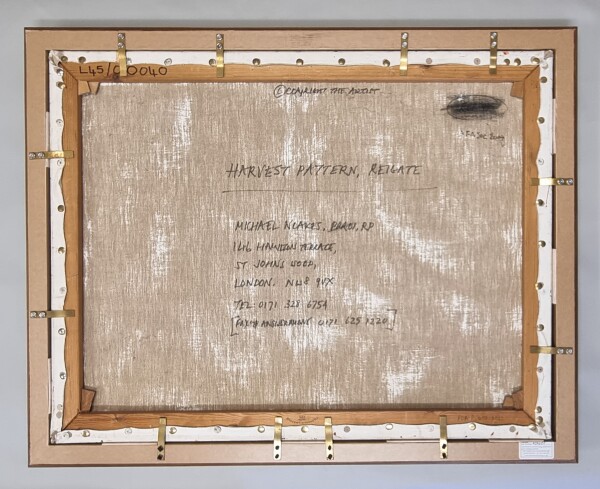 L45/C 0040
© COPYRIGHT THE ARTIST.
HARVEST PATTERN, REIGATE
MICHAEL NOAKES, PROI, RP
146 HAMILTON TERRACE,
ST JOHNS WOOD,
LONDON. NW8 9UX
TEL 0171 328 6754
[FAX + ANSWERPHONE 0171 625 1220]